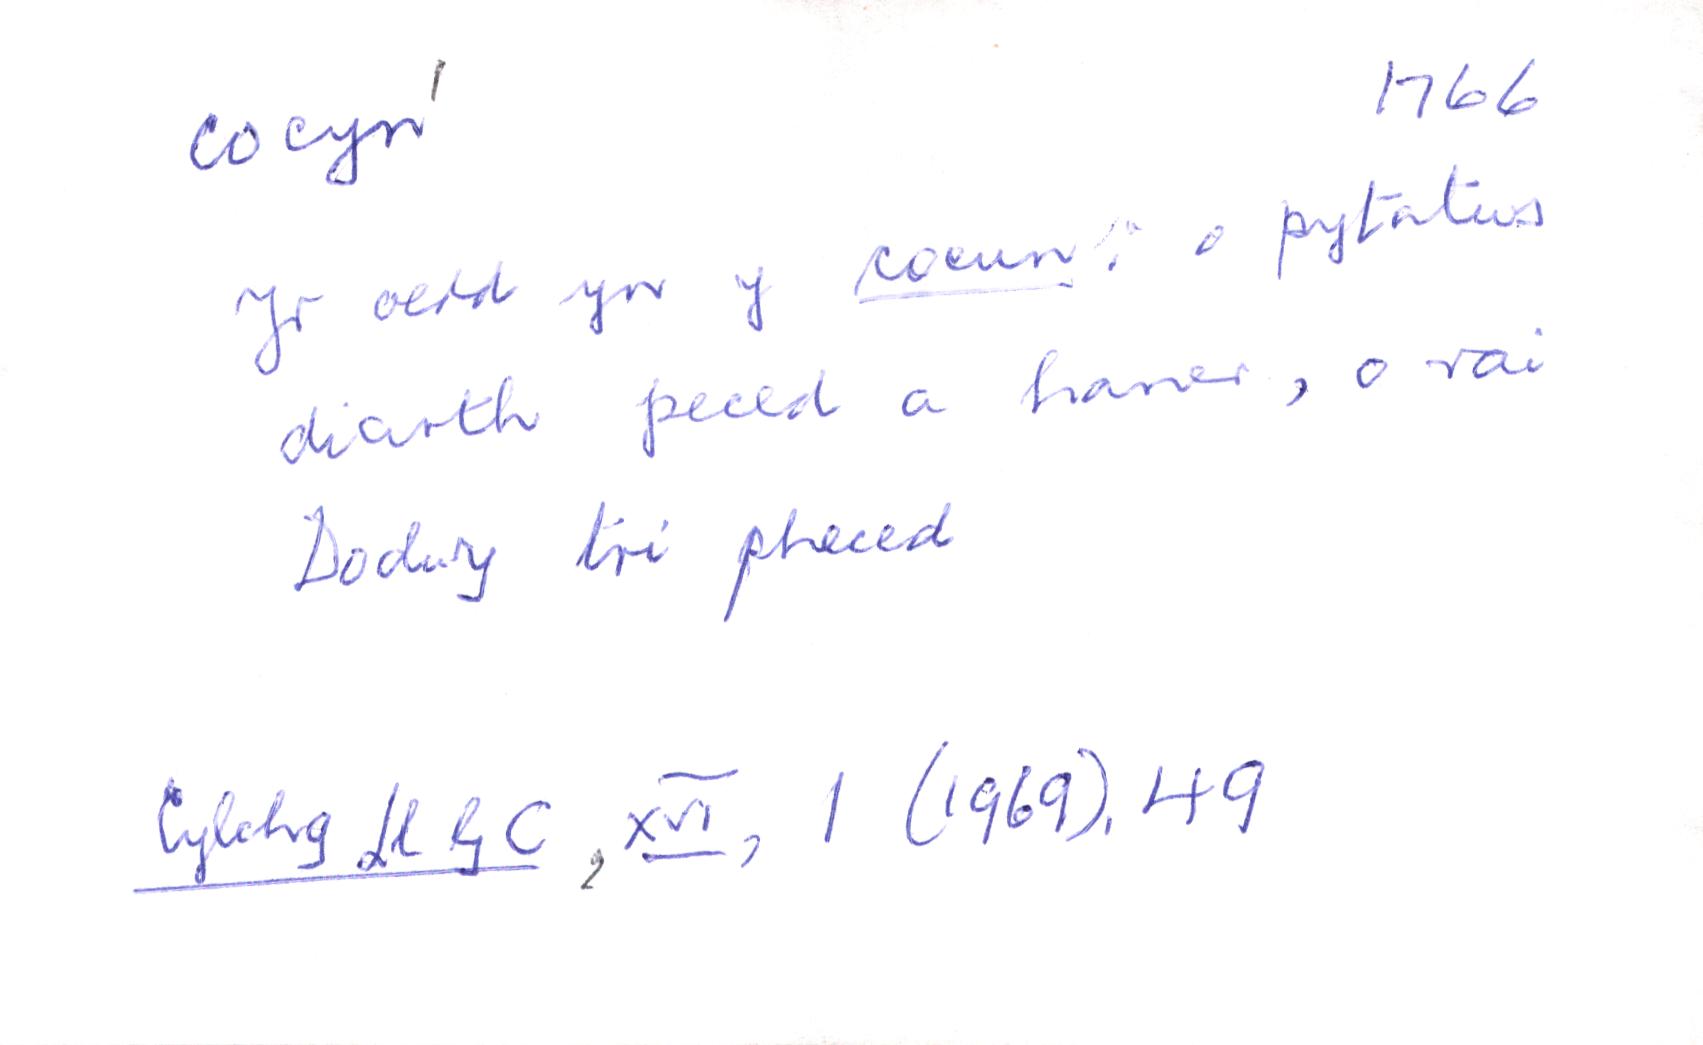 cocyn¹ 1766
Yr oedd yn y cocun: o pytatws
diarth peced a haner, o rai
Dodwy tri pheced
Cylchg Ll G C, xvi, 1 (1969), 49